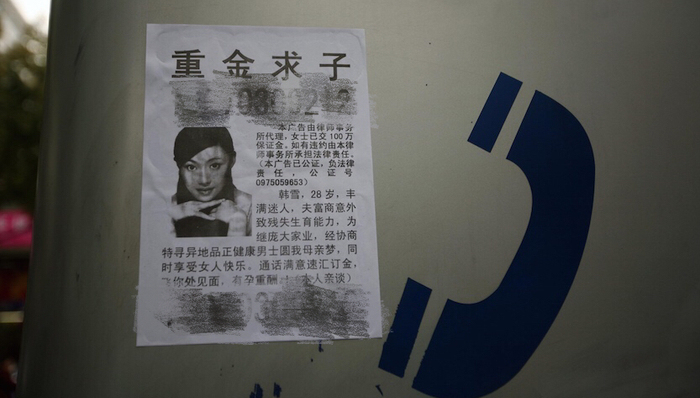 重金求子
本广告由律师事务
所代理,女士已交100万
保证金,如有违约由本律
师事务所承担法律责任。
(本广告已公证,负法律
责任,公证号
0975059653)
韩雪,28岁,丰
满迷人,夫富商意外
致残失生育能力,为
继庞大家业,经协商
特寻异地品正健康男士圆我母亲梦,同
时享受女人快乐。通话满意速汇订金,
你处见面,有孕重酬 本人亲谈)